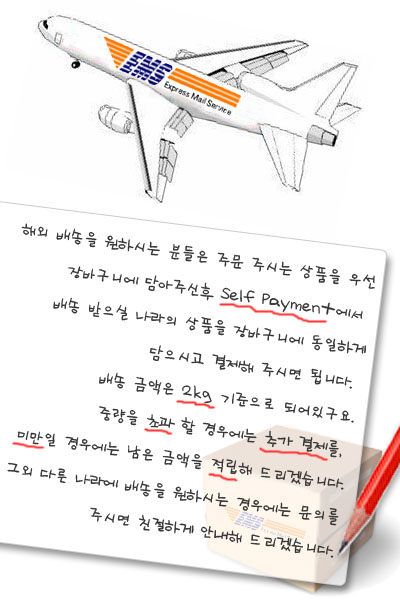 EMS
Express Mail Service
해외 배송을 원하시는 분들은 주문 주시는 상품을 우선
장바구니에 담아주신후 Self Payment에서
배송 받으실 나라의 상품을 장바구니에 동일하게
담으시고 결제해 주시면 됩니다.
배송 금액은 2kg 기준으로 되어있구요.
중량을 초과 할 경우에는 추가 결제를,
미만일 경우에는 남은 금액을 적립해 드리겠습니다.
그외 다른 나라에 배송을 원하시는 경우에는 문의를
주시면 친절하게 안내해 드리겠습니다.
EMS